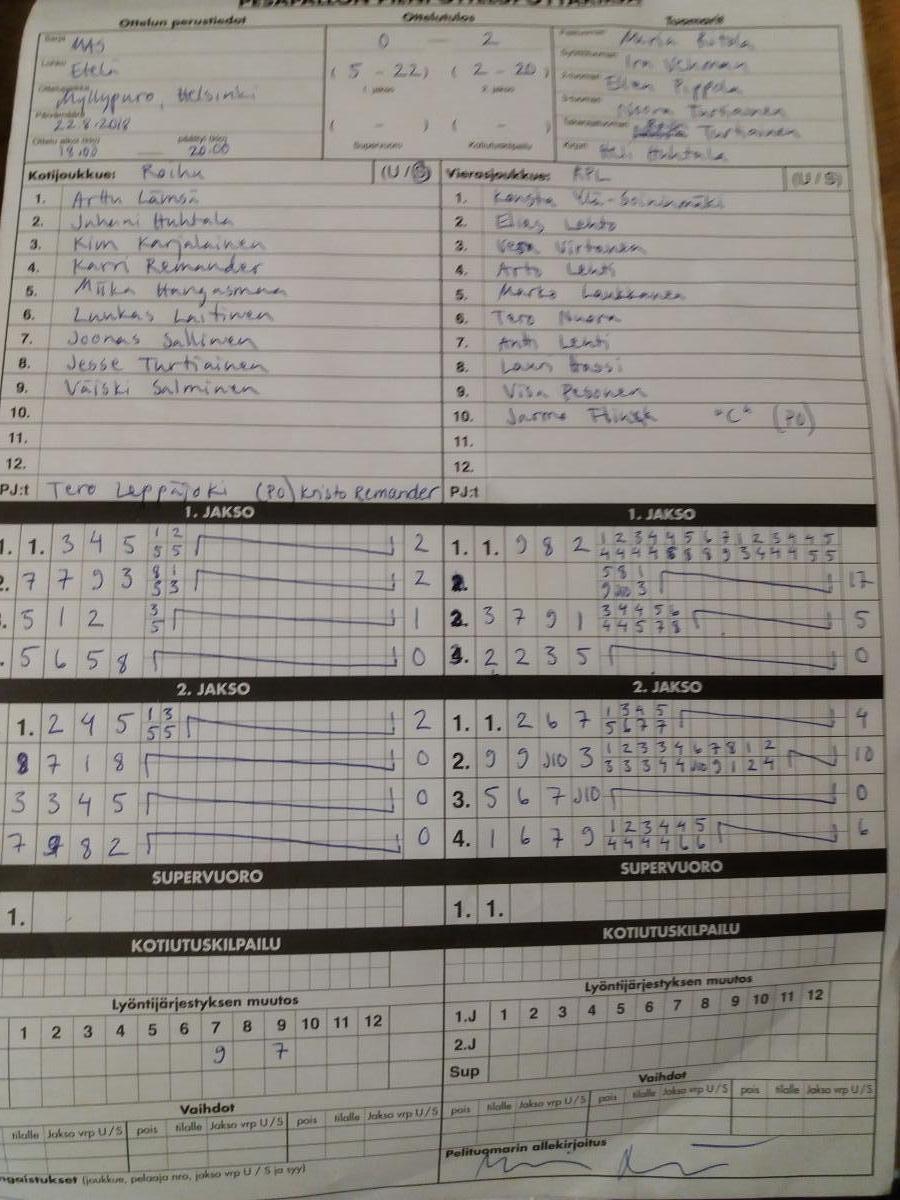 PESÄPALLON PIENI OTTELUPÖYTÄKIRJA
Ottelun perustiedot
Ottelutulos
Tuomarit
MAS
Etelä
Myllypuro, Helsinki
22.8.2018
18.00 — 20.00
0 — 2
( 5 - 22 ) ( 2 - 20 )
1. jakso 2. jakso
( - ) ( - )
Supervuoro Kotiutuskilpailu
Turtiainen
Huhtala
Kotijoukkue: Roihu (U/S)
1. Arttu Lämsä
2. Juhani Huhtala
3. Kim Karjalainen
4. Karri Remander
5. Miika Hangasmaa
6. Luukas Laitinen
7. Joonas Sallinen
8. Jesse Turtiainen
9. Väiski Salminen
10.
11.
12.
PJ:t Tero Leppäjoki (PO) Kristo Remander
Vierasjoukkue: RPL (U/S)
1. Konsta Ylä-Soininmäki
2. Elias Lehto
3. Vesa Virtanen
4. Arto Lehti
5. Marko Laukkanen
6. Tero Nuora
7. Antti Lehti
8. Lauri Hassi
9. Visa Pesonen
10. Jarmo "C" (PO)
11.
12.
PJ:t
1. JAKSO
1. 1. 3 4 5 1/5 2/5 2
2. 7 7 9 3 8/3 1/3 2
. 5 1 2 3/5 1
. 5 6 5 8 0
2. JAKSO
1. 2 4 5 1/5 3/5 2
8 7 1 8 0
3 3 4 5 0
7 9 8 2 0
SUPERVUORO
1.
KOTIUTUSKILPAILU
Lyöntijärjestyksen muutos
1 2 3 4 5 6 7 8 9 10 11 12
9 7
Vaihdot
tilalle Jakso vrp U/S pois tilalle Jakso vrp U/S pois tilalle Jakso vrp U/S
ngaistukset (joukkue, pelaaja nro, jakso vrp U / S ja syy)
1. JAKSO
1. 1. 9 8 2
1 2 3 4 4 5 6 7 1 2 3 4 4 5
4 4 4 4 8 8 8 9 3 4 4 4 5 5
2. 5 8 1
9 J10 3 17
3. 3 7 9 1
3 4 4 5 6
4 4 5 7 8 5
4. 2 2 3 5 0
2. JAKSO
1. 1. 2 6 7
1 3 4 5
5 6 7 7 4
2. 9 9 J10 3
1 2 3 3 4 6 7 8 1 2
3 3 3 4 4 J10 9 1 2 4 10
3. 5 6 7 J10 0
4. 1 6 7 9
1 2 3 4 4 5
4 4 4 4 6 6 6
SUPERVUORO
1. 1.
KOTIUTUSKILPAILU
Lyöntijärjestyksen muutos
1.J 1 2 3 4 5 6 7 8 9 10 11 12
2.J
Sup
Vaihdot
pois tilalle Jakso vrp U/S pois tilalle Jakso vrp U/S pois tilalle Jakso vrp U/S
Pelituomarin allekirjoitus